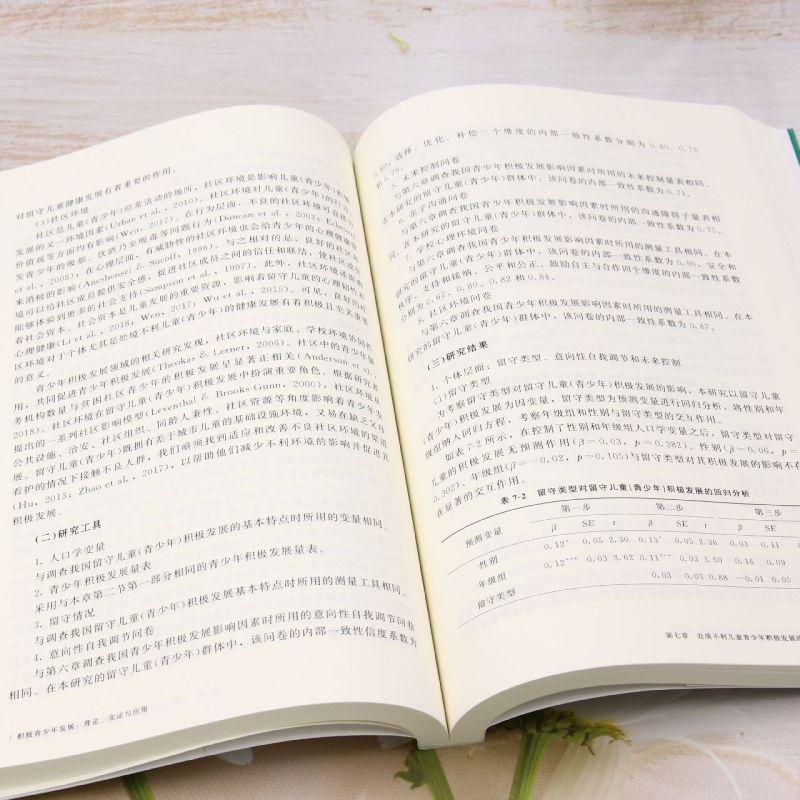 对留守儿童健康发展有着重要的作用。
(3)社区环境
社区是儿童(青少年)经常活动的场所，社区环境是影响儿童(青少年)积极
发展的又一环境因素(Urban et al., 2010)。社区环境对儿童(青少年)的行为、
价值观等方面均有影响(Wen, 2017)。在行为层面，不良的社区环境可直接引
发青少年的吸烟、饮酒乃至吸毒等问题行为(Duncan et al., 2002; Echeverr
et al., 2008)；在心理层面，有威胁性的社区环境也会给青少年的心理健康带
来消极的影响(Aneshensel & Sucoff, 1996)。与之相对的是，良好的社区环
境可以给社区成员提供安全感，促进社区成员之间的信任和联结，使社区成员
能够体验到更多的社会支持(Sampson et al., 1997)。此外，社区环境还影响
着社会资本。社会资本是儿童发展的重要资源，影响着留守儿童的心理韧性和
心理健康(Li et al., 2018; Wen, 2017; Wu et al., 2015)。可见，良好的社
区环境对于个体尤其是处境不利儿童(青少年)的健康发展有着积极且至关重要
的意义。
青少年积极发展领域的相关研究发现，社区环境与家庭、学校环境协同作
用，共同促进青少年积极发展(Theokas & Lerner, 2006)。社区中的青少年服
务机构数量与贫困社区青少年的积极发展呈显著正相关(Anderson et al.,
2018)。社区环境在留守儿童(青少年)积极发展中扮演重要角色。根据研究者
提出的一系列社区影响模型(Leventhal & Brooks-Gunn, 2000)，社区环境从
公共设施、治安、社区组织、同龄人素性、社区资源等角度影响着青少年发
展。留守儿童(青少年)既拥有差于城市儿童的基础设施环境，又易在缺乏父母
看护的情况下接触不良人群，我们亟须找到适应和改善不良社区环境的渠道
(Hu, 2013; Zhao et al., 2017)，以帮助他们减少不利环境的影响并促进其
积极发展。
(二)研究工具
1. 人口学变量
与调查我国留守儿童(青少年)积极发展的基本特点时所用的变量相同。
2. 青少年积极发展量表
采用与本章第二节第一部分相同的青少年积极发展量表。
3. 留守情况
与调查我国留守儿童(青少年)积极发展基本特点时所用的测量工具相同。
4. 意向性自我调节问卷
与第六章调查我国青少年积极发展影响因素时所用的意向性自我调节问卷
相同。在本研究的留守儿童(青少年)群体中，该问卷的内部一致性信度系数为
/ 积极青少年发展：理论、实证与应用
0.80，选择、优化、补偿三个维度的内部一致性系数分别为 0.80、0.73
和0.78。
未来控制问卷
与第六章调查我国青少年积极发展影响因素时所用的未来控制量表相同。
在本研究的留守儿童(青少年)群体中，该问卷的内部一致性系数为 0.71。
亲子沟通问卷
与第六章调查我国青少年积极发展影响因素时所用的沟通障碍子量表相
同。在本研究的留守儿童(青少年)群体中，该问卷的内部一致性系数为 0.75。
7. 学校心理环境问卷
与第六章调查我国青少年积极发展影响因素时所用的测量工具相同。在本
研究的留守儿童(青少年)群体中，该问卷的内部一致性系数为 0.90，安全和
秩序、支持和接纳、公平和公正、鼓励自主与合作四个维度的内部一致性系数
分别为 0.67、0.80、0.82 和 0.84。
8. 社区环境问卷
与第六章调查我国青少年积极发展影响因素时所用的测量工具相同。在本
研究的留守儿童(青少年)群体中，该问卷的内部一致性系数为 0.87。
(三)研究结果
1. 个体层面：留守类型、意向性自我调节和未来控制
(1)留守类型
为考察留守类型对留守儿童(青少年)积极发展的影响，本研究以留守儿童
(青少年)积极发展为因变量，留守类型为预测变量进行回归分析，将性别和年
级组纳入回归方程，考察年级组和性别与留守类型的交互作用。
如表 7-2所示，在控制了性别和年级组人口学变量之后，留守类型对留守
儿童的积极发展无预测作用(β=0.03，p=0.382)。性别(β=0.06，p=
0.302)、年级组(β=−0.02，p=0.105)与留守类型对其积极发展的影响不存
在显著的交互作用。
表 7-2 留守类型对留守儿童(青少年)积极发展的回归分析
预测变量 第一步 第二步 第三步
β SE t β SE t β SE
性别 0.12* 0.05 2.30 0.13* 0.05 2.36 0.03 0.11
年级组 0.12*** 0.03 3.62 0.11*** 0.03 3.50 0.16 0.09
留守类型 0.03 0.03 0.88 −0.01 0.05
第七章 处境不利儿童青少年积极发展的